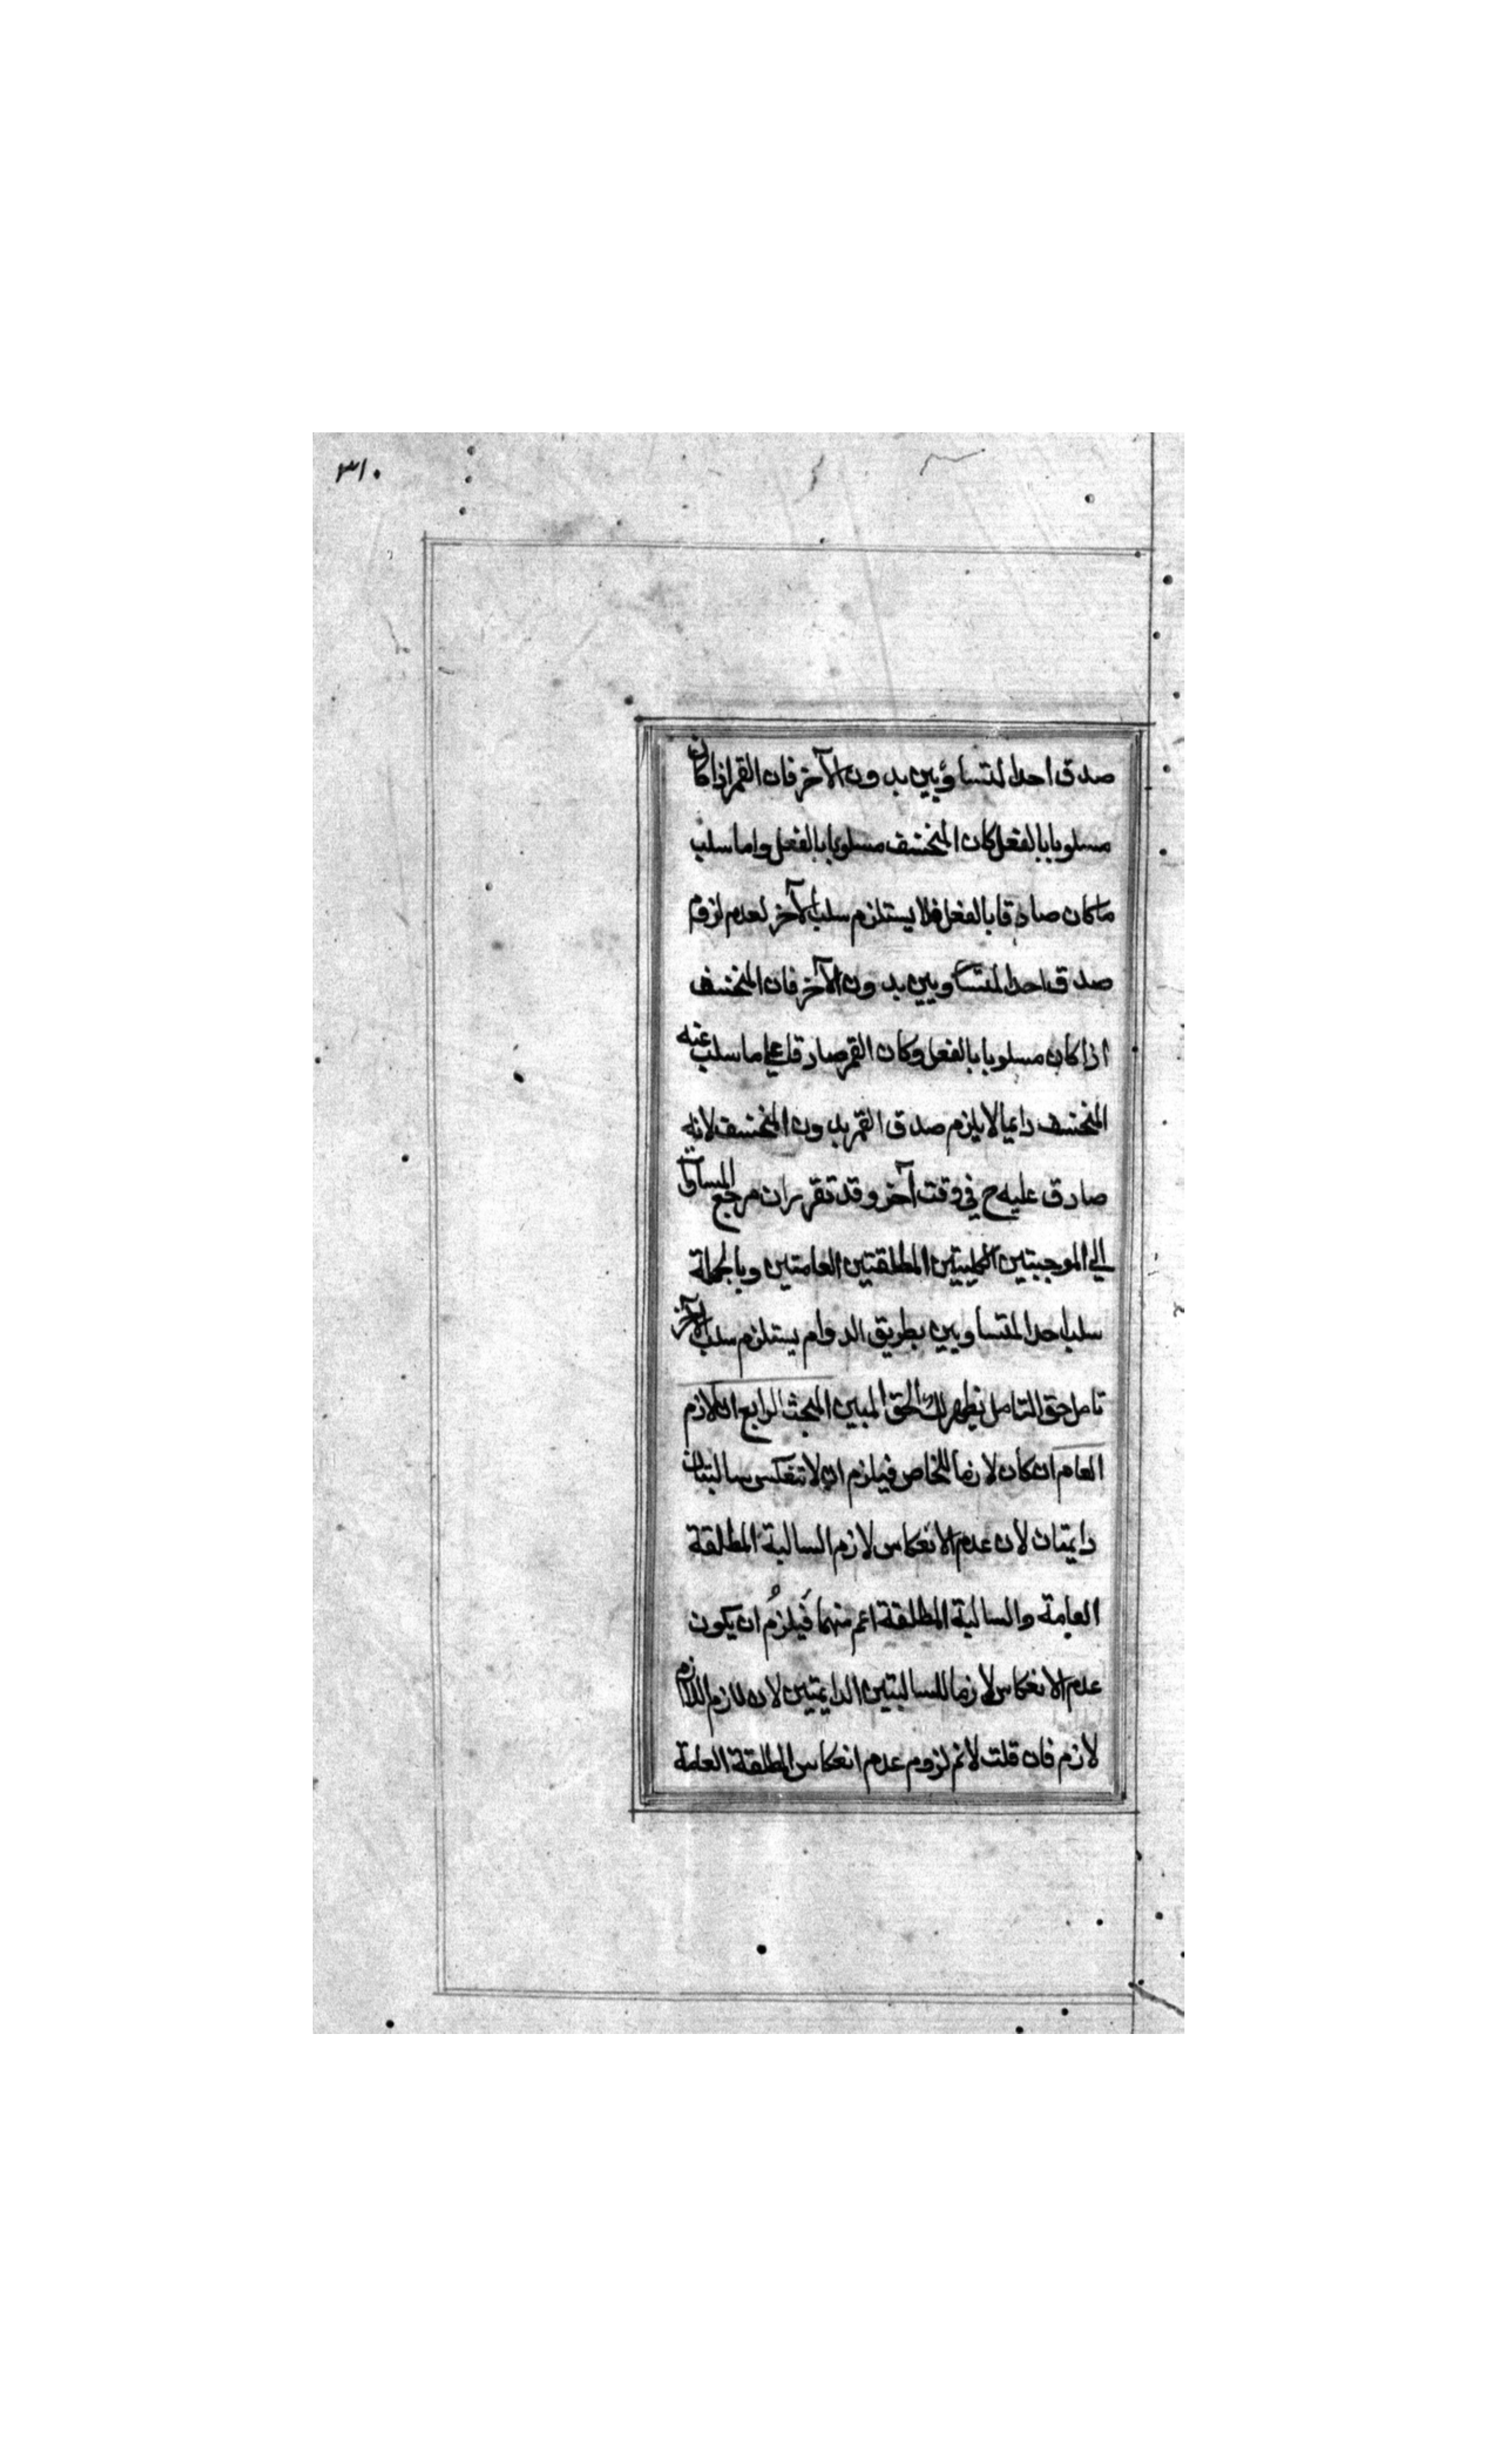 ٣١٠
صدق احد المتساويين بدون الآخر فان القمر اذا كان
مسلوبا بالفعل كان المنخسف مسلوبا بالفعل واما سلب
ما كان صادقا بالفعل فلا يستلزم سلب الآخر لعدم لزوم
صدق احد المتساويين بدون الآخر فان المنخسف
اذا كان مسلوبا بالفعل وكان القمر صادقا على ما سلب عنه
المنخسف دايما لا يلزم صدق القمر بدون المنخسف لانه
صادق عليه ح في وقت آخر وقد تقرر ان مرجع المساواة
الي الموجبتين الكليتين المطلقتين العامتين وبالجملة
سلب احد المتساويين بطريق الدوام يستلزم سلب الآخر
تامل حق التامل يظهر لك الحق المبين المبحث الرابع ان لازم
العام ان كان لازما للخاص فيلزم ان لا تنعكس سالبتان
دايمتان لان عدم الانعكاس لازم السالبة المطلقة
العامة والسالبة المطلقة اعم منهما فَيلزمُ ان يكون
عدم الانعكاس لازما للسالبتين الدايمتين لان لازم اللازم
لازم فان قلت لانم لزوم عدم انعكاس المطلقة العامة